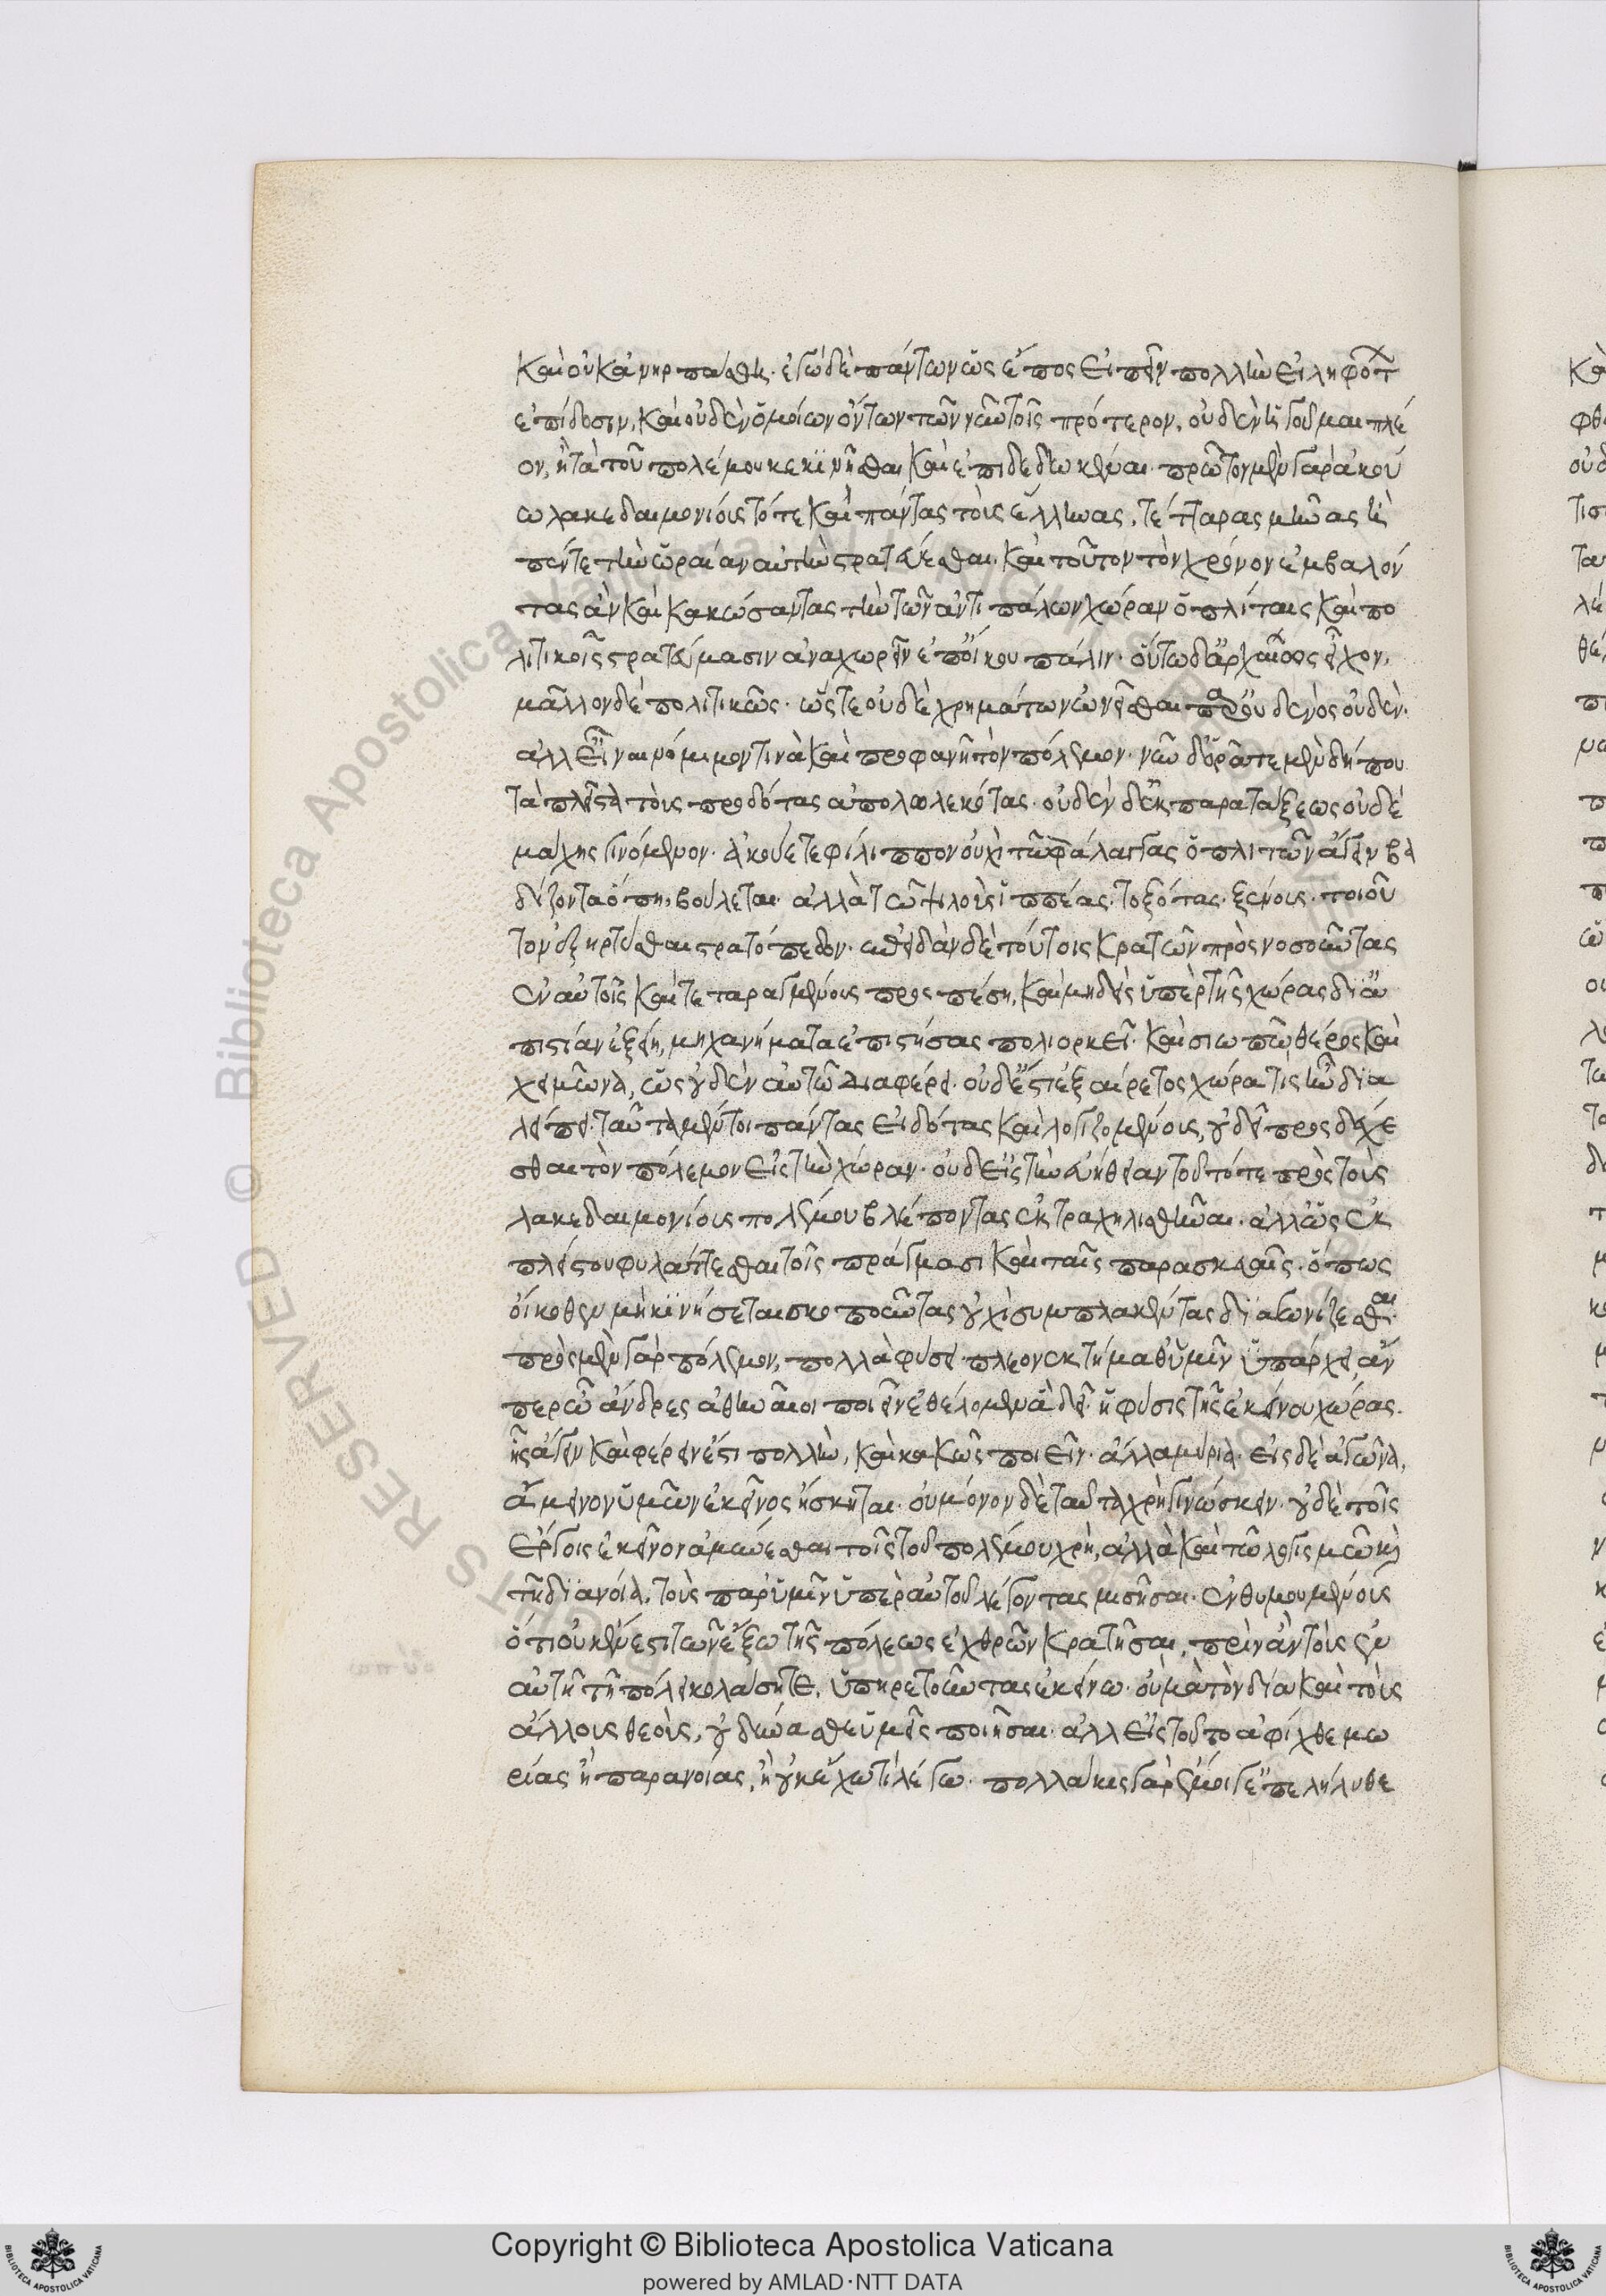 καὶ οὐκ ἀνηρπάσθη. ἐγὼ δὲ πάντων ὡς ἔπος εἰπεῖν πολλὴν εἰληφότ
ἐπίδοσιν, καὶ οὐδὲν ὁμοίων ὄντων τῶν νῦν τοῖς πρότερον, οὐδὲν ἡγοῦμαι πλέ
ον, ἢ τὰ τοῦ πολέμου κεκινῆσθαι καὶ ἐπιδεδωκέναι. πρῶτον μὲν γὰρ ἀκού
ω λακεδαιμονίους τότε καὶ πάντας τοὺς ἕλληνας, τέτταρας μῆνας ἢ
πέντε τὴν ὡραίαν αὐτὴν στρατεύεσθαι. καὶ τοῦτον τὸν χρόνον ἐμβαλόν
τας ἂν καὶ κακώσαντας τὴν τῶν ἀντιπάλων χώραν ὁπλίταις καὶ πο
λιτικοῖς στρατεύμασιν ἀναχωρεῖν ἐπ' οἴκου πάλιν. οὕτω δ' ἀρχαίως εἶχον,
μᾶλλον δὲ πολιτικῶς. ὥστε οὐδὲ χρημάτων ὠνεῖσθαι παρ' οὐδενὸς οὐδέν.
ἀλλ' εἶναι νόμιμόν τινα καὶ προφανῆ τὸν πόλεμον. νῦν δ' ὁρᾶτε μὲν δήπου
τὰ πλεῖστα τοὺς προδότας ἀπολωλεκότας. οὐδὲν δ' ἐκ παρατάξεως οὐδὲ
μάχης γινόμενον. ἀκούετε φίλιππον οὐχὶ τῶ φάλαγγας ὁπλιτῶν ἄγειν βα
δίζοντα ὅπη βούλεται. ἀλλὰ τῶ ψιλοὺς ἱππέας. τοξότας. ξένους. ποιοῦ
τον ἐξηρτῦσθαι στρατόπεδον. ἐπειδὰν δὲ τούτοις κρατῶν πρὸς νοσοῦντας
ἐν αὐτοῖς καὶ τεταραγμένους προσπέση, καὶ μηδεὶς ὑπὲρ τῆς χώρας δι' ἀ
πιστίαν ἐξίη, μηχανήματα ἐπιστήσας πολιορκεῖ. καὶ σιωπῶ θέρος καὶ
χειμῶνα, ὡς οὐδὲν αὐτῶ διαφέρει. οὐδ' ἔστ' ἐξαίρετος χώρα τις ἣν δια
λείπει. ταῦτα μέντοι πάντας εἰδότας καὶ λογιζομένους, οὐ δεῖ προσδέχε
σθαι τὸν πόλεμον εἰς τὴν χώραν. οὐδ' εἰς τὴν εὐήθειαν τοῦ τότε πρὸς τοὺς
λακεδαιμονίους πολέμου βλέποντας ἐκτραχηλισθῆναι. ἀλλ' ὡς ἐκ
πλείστου φυλάττεσθαι τοῖς πράγμασι καὶ ταῖς παρασκευαῖς. ὅπως
οἴκοθεν μὴ κινήσεται σκοποῦντας οὐχὶ συμπλακέντας διαγωνίζεσθαι.
πρὸς μὲν γὰρ πόλεμον, πολλὰ φύσει πλεονεκτήμαθ' ὑμῖν ὑπάρχει, ἄν
περ ὦ ἄνδρες ἀθηναῖοι ποιεῖν ἐθέλομεν ἃ δεῖ. ἡ φύσις τῆς ἐκείνου χώρας.
ἧς ἄγειν καὶ φέρειν ἔστι πολλὴν, καὶ κακῶς ποιεῖν. ἄλλα μυρία. εἰς δὲ ἀγῶνα,
ἄμεινον ὑμῶν ἐκεῖνος ἤσκηται. οὐ μόνον δὲ ταῦτα χρὴ γινώσκειν. οὐδὲ τοῖς
ἔργοις ἐκεῖνον ἀμύνεσθαι τοῖς τοῦ πολέμου χρὴ, ἀλλὰ καὶ τῶ λογισμῶ καὶ
τῆ διανοία, τοὺς παρ' ὑμῖν ὑπὲρ αὐτοῦ λέγοντας μισῆσαι. ἐνθυμουμένους
ὅτι οὐκ ἔνεστι τῶν ἔξω τῆς πόλεως ἐχθρῶν κρατῆσαι, πρὶν ἂν τοὺς ἐν
αὐτῆ τῆ πόλει κολάσητε, ὑπηρετοῦντας ἐκείνω. οὐ μὰ τὸν δία καὶ τοὺς
ἄλλους θεοὺς, οὐ δύνασθε ὑμεῖς ποιῆσαι. ἀλλ' εἰς τοῦτο ἀφίχθε μω
ρίας ἢ παρανοίας, ἢ οὐκ ἔχω τί λέγω. πολλάκις γὰρ ἔμοιγε ἐπελήλυθε
© Biblioteca Apostolica Vaticana
Copyright © Biblioteca Apostolica Vaticana
powered by AMLAD·NTT DATA